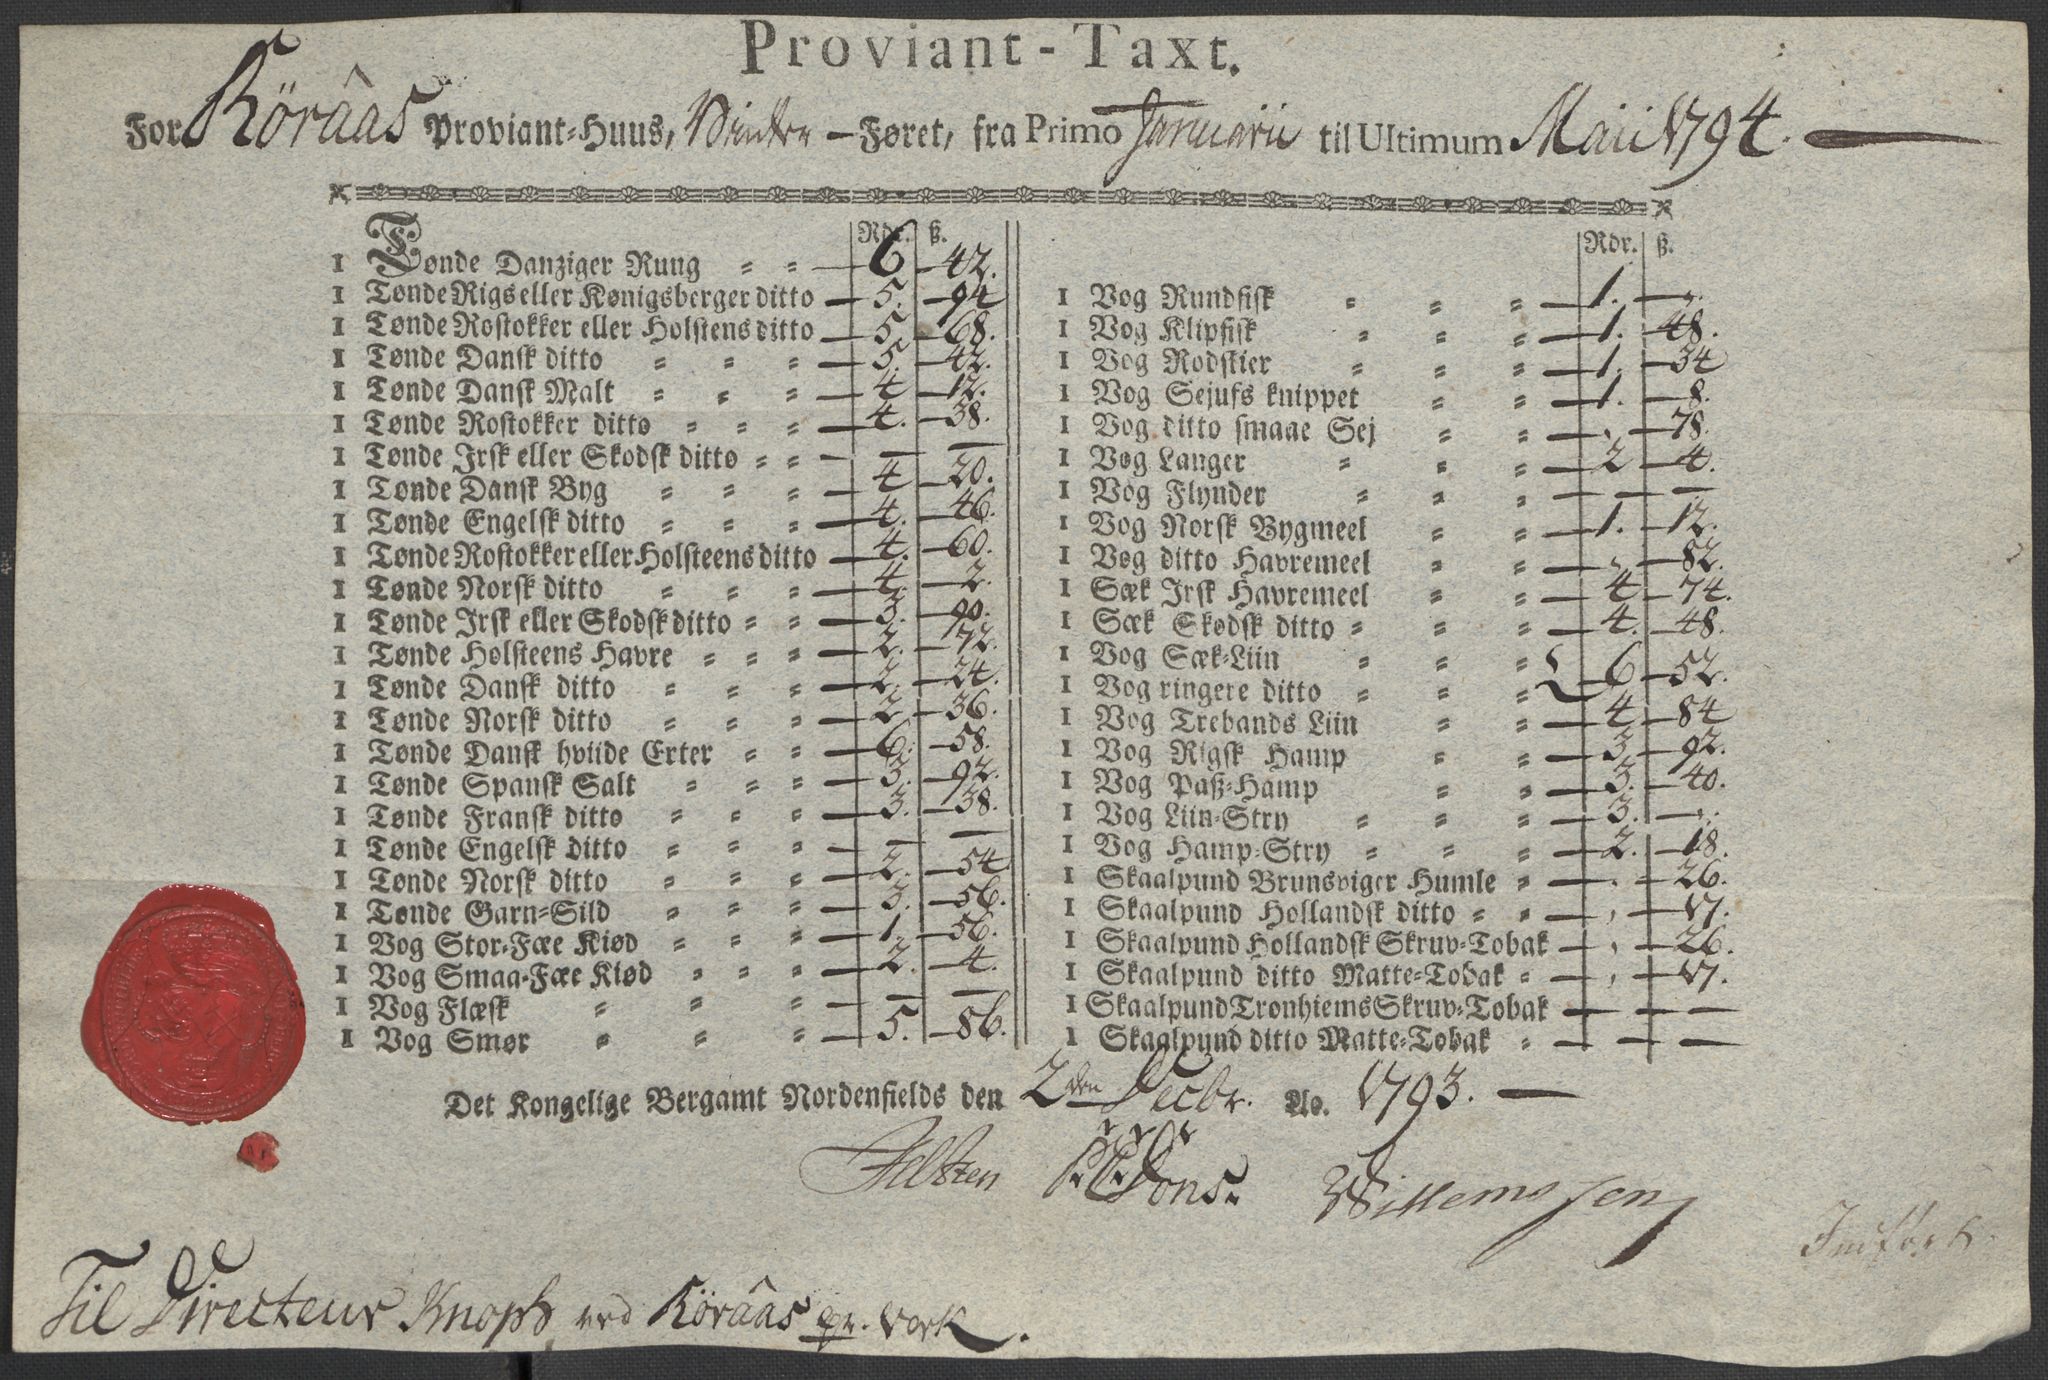 Proviant-Taxt.
For Röraas Proviant-Huus, Vinter-Føret, fra Primo Januarii til Ultimum Maii 1794.
Rdr. ß.
1 Tønde Danziger Rung 6. 42.
1 Tønde Rigs eller Kønigsberger ditto 5. 94
1 Tønde Rostokker eller Holstens ditto 5. 68.
1 Tønde Dansk ditto 5. 42.
1 Tønde Dansk Malt 4 12.
1 Tønde Rostokker ditto 4. 38.
1 Tønde Irsk eller Skodsk ditto — —
1 Tønde Dansk Byg 4 20.
1 Tønde Engelsk ditto 4. 46.
1 Tønde Rostokker eller Holsteens ditto 4. 60.
1 Tønde Norsk ditto 4. 2.
1 Tønde Irsk eller Skodsk ditto 3. 90.
1 Tønde Holsteens Havre 2. 72.
1 Tønde Dansk ditto 2. 24.
1 Tønde Norsk ditto 2. 36.
1 Tønde Dansk hviide Erter 6. 58.
1 Tønde Spansk Salt 3. 92.
1 Tønde Fransk ditto 3. 38.
1 Tønde Engelsk ditto — —
1 Tønde Norsk ditto 2. 54
1 Tønde Garn-Sild 3. 56.
1 Vog Stor-Fæe Kiød 1. 56.
1 Vog Smaa-Fæe Kiød 2. 4.
1 Vog Flæsk — —
1 Vog Smør 5. 86.
Rdr. ß.
1 Vog Rundfisk 1. -
1 Vog Klipfisk 1. 48.
1 Vog Rodskier 1. 34
1 Vog Sejufs knippet 1. 8.
1 Vog ditto smaae Sej - 78.
1 Vog Langer 2 4.
1 Vog Flynder — —
1 Vog Norsk Bygmeel 1. 12.
1 Vog ditto Havremeel - 82.
1 Sæk Irsk Havremeel 4 74.
1 Sæk Skodsk ditto 4. 48.
1 Vog Sæk-Liin 6 52.
1 Vog ringere ditto
1 Vog Trebands Liin 4 84
1 Vog Rigsk Hamp 3. 92.
1 Vog Paß-Hamp 3. 40.
1 Vog Liin-Stry 3. -
1 Vog Hamp-Stry 2. 18.
1 Skaalpund Brunsviger Humle - 26.
1 Skaalpund Hollandsk ditto - 17.
1 Skaalpund Hollandsk Skruv-Tobak - 26.
1 Skaalpund ditto Matte-Tobak - 17.
1 Skaalpund Tronhiems Skruv-Tobak — —
1 Skaalpund ditto Matte-Tobak — —
Det Kongelige Bergamt Nordenfields den 2den Decbr. Ao. 1793.
Dons. Willemssen
Indført.
Til Directeur Knoph ved Röraas Verk.